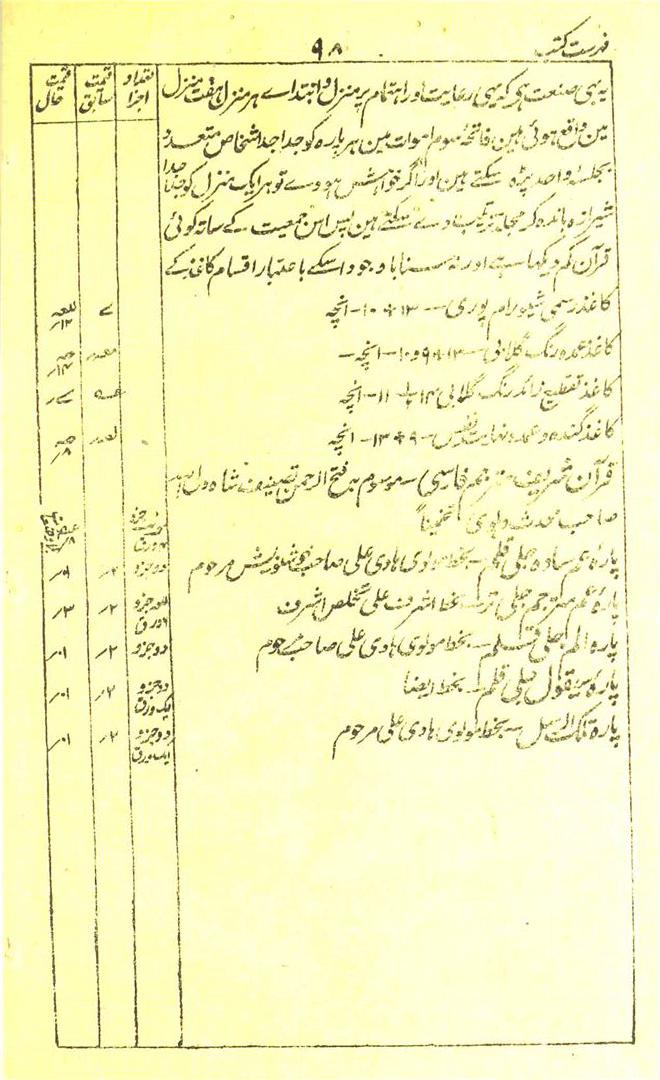 فہرست کتب
۹۸
تعداد اجزا
قیمت سابق
قیمت حال
یہ بھی صنعت ہی کہ یہی رعایت اور اہتمام پر منزل و ابتداے ہر منزل ہفت منزل
مین واقع ہوئی ہین فاتحہ سوم اموات مین ہر پارہ کو جدا جدا اشخاص متعدد
بجلسہ واحد پڑہ سکتے ہین اور اگر خواہش ہووے تو ہر ایک منزل کو جدا جدا
شیرازہ باندہ کر مجلد ترتیب دے سکتے ہین پس اس جمعیت کے ساتہ کوئی
قرآن کم دیکہا ہے اور نہ سنا باوجود اسکے باعتبار اقسام کاغذ کے
کاغذ رسمی شیورام پوری — ۱۳ + ۱۰ — انچہ
کاغذ عمدہ رنگ گلابی — ۱۳ + ۹ و ۱۰ — انچہ —
کاغذ تقطیع زائد رنگ گلابی ۱۴ + ۱۱ — انچہ
کاغذ گندہ و عمدہ نہایت نفیس — ۹ + ۱۳ — انچہ
قرآن شریف مترجم فارسی — موسوم بہ فتح الرحمن تصنیف شاہ ولی اللہ
صاحب محدث دہلوی تخمیناً
پارہ عم سادہ جلی قلم — بخط مولوی ہادی علی صاحب خوشنویس مرحوم دو جزو ۲؍ ۱؍
پارہ عم مترجم جلی قلم — بخط اشرف علی متخلص اشرف ۲؍ ۳؍
پارہ الم جلی قلم — بخط مولوی ہادی علی صاحب مرحوم دو جزو ۲؍ ۱؍
پارہ سیقول جلی قلم — بخط ایضا دو جزو یک ورق ۲؍ ۱؍
پارہ تلک الرسل — بخط مولوی ہادی علی مرحوم دو جزو ایک ورق ۲؍ ۱؍